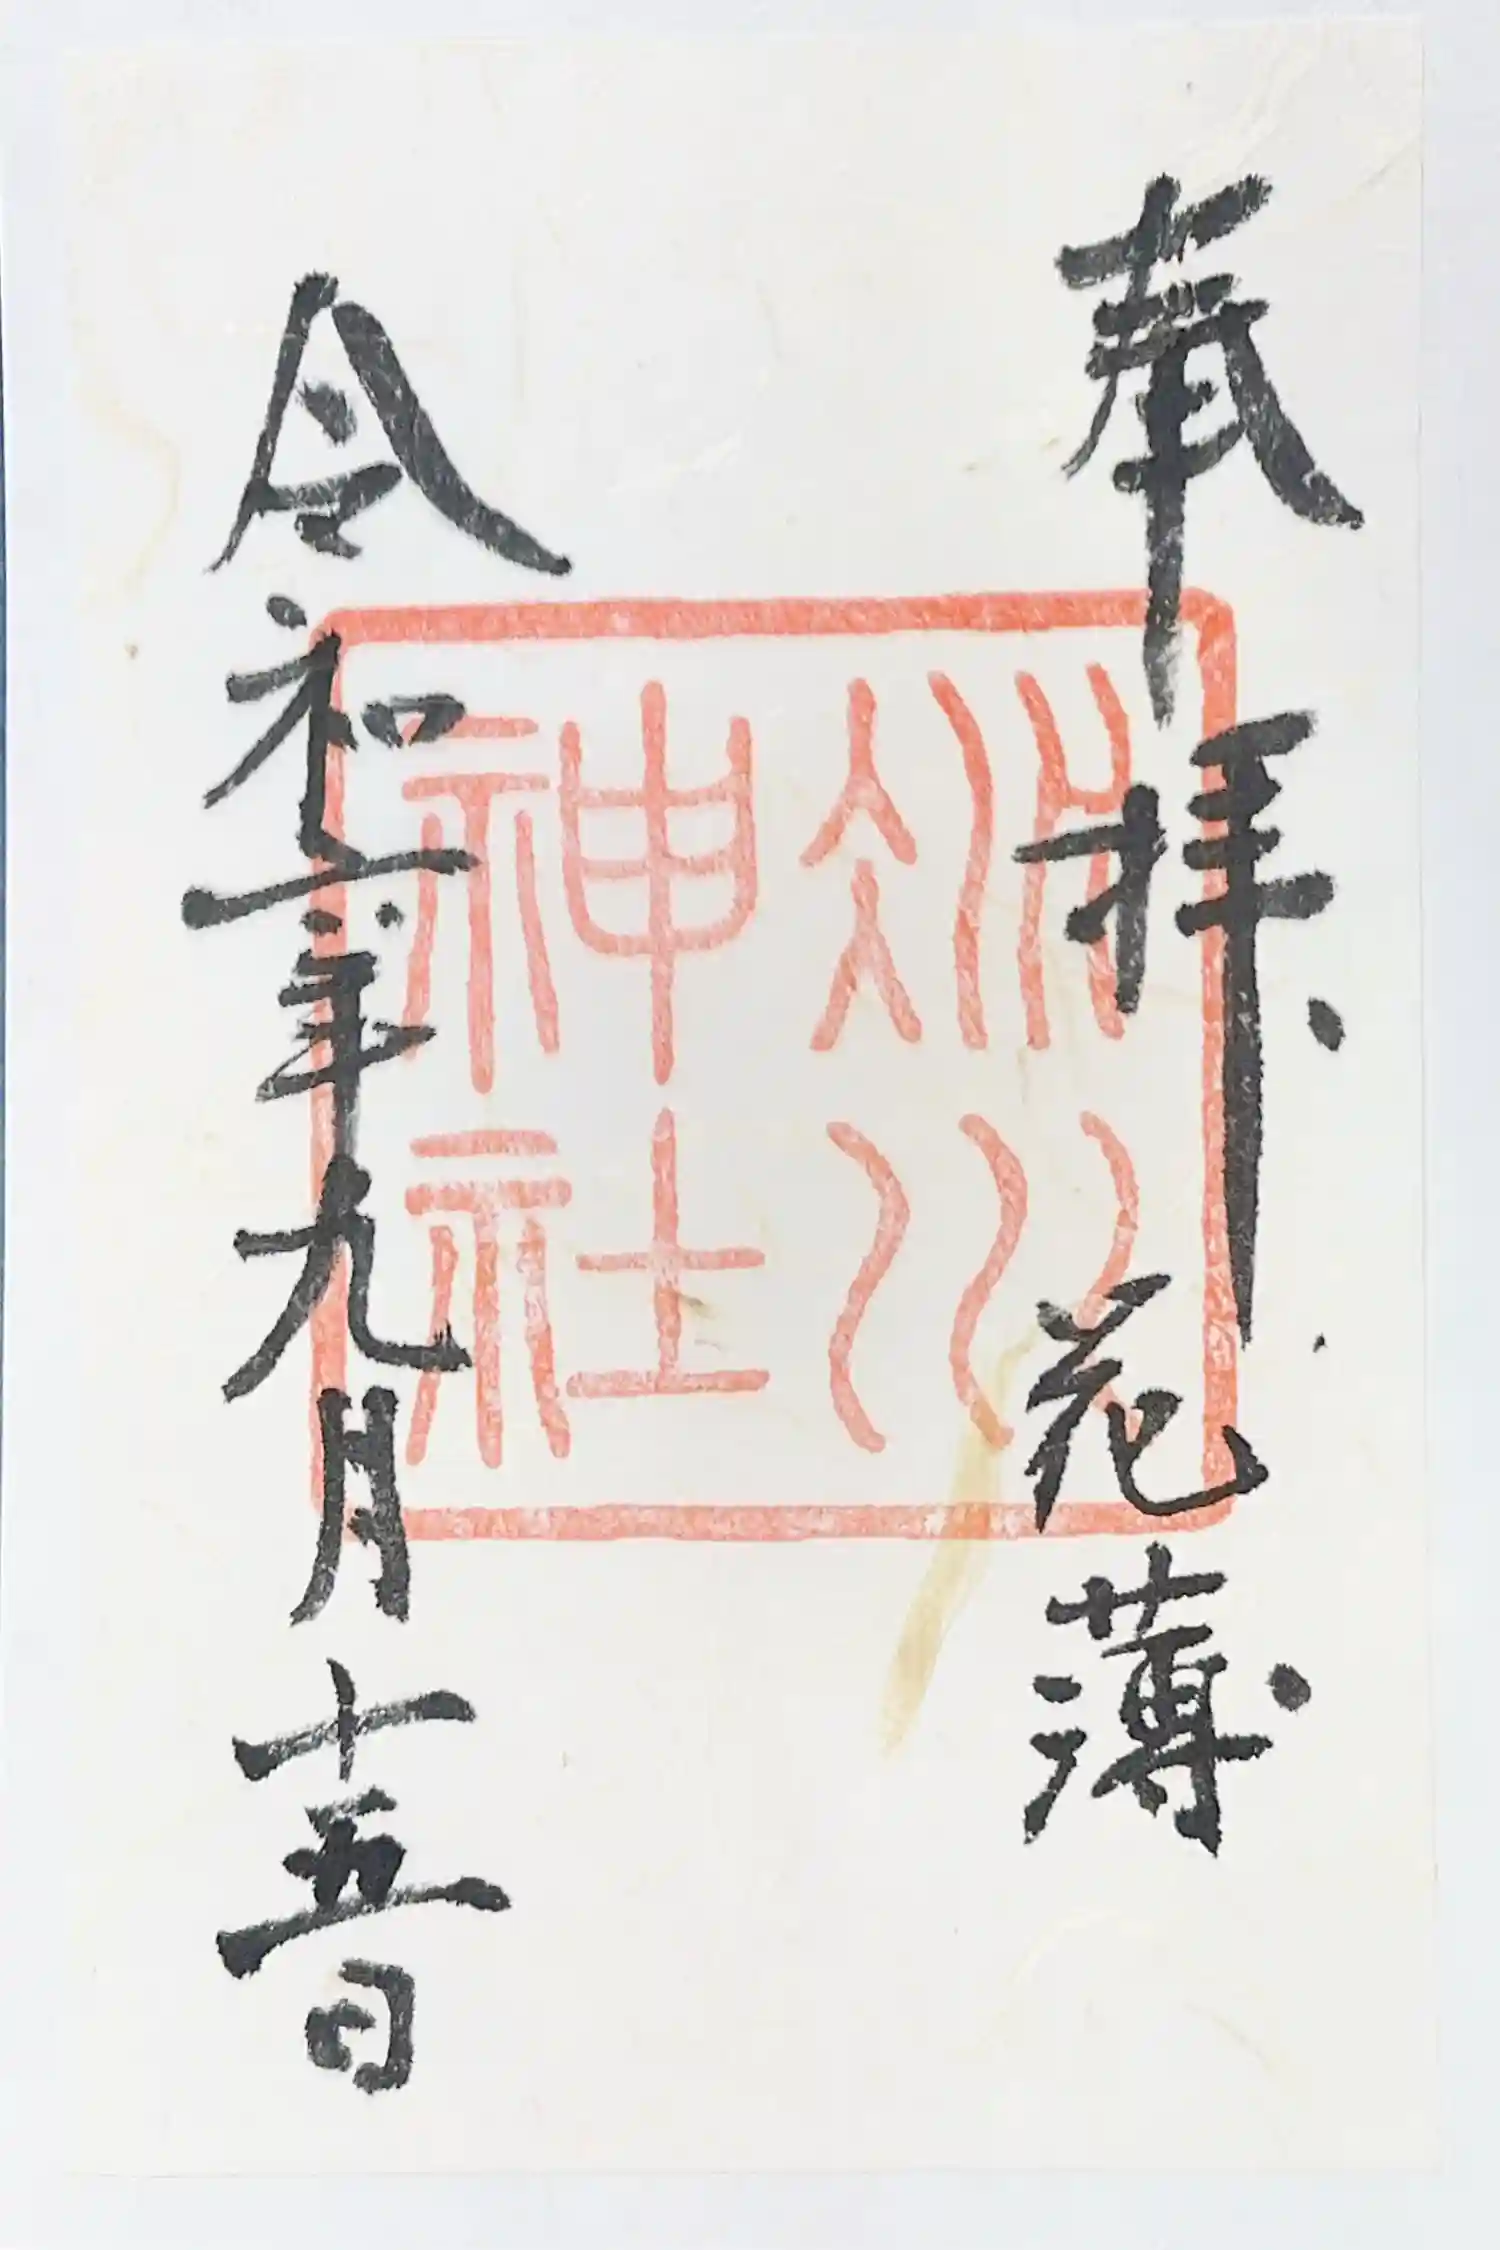 奉拝 花薄
冰川
神社
令和六年九月十五日